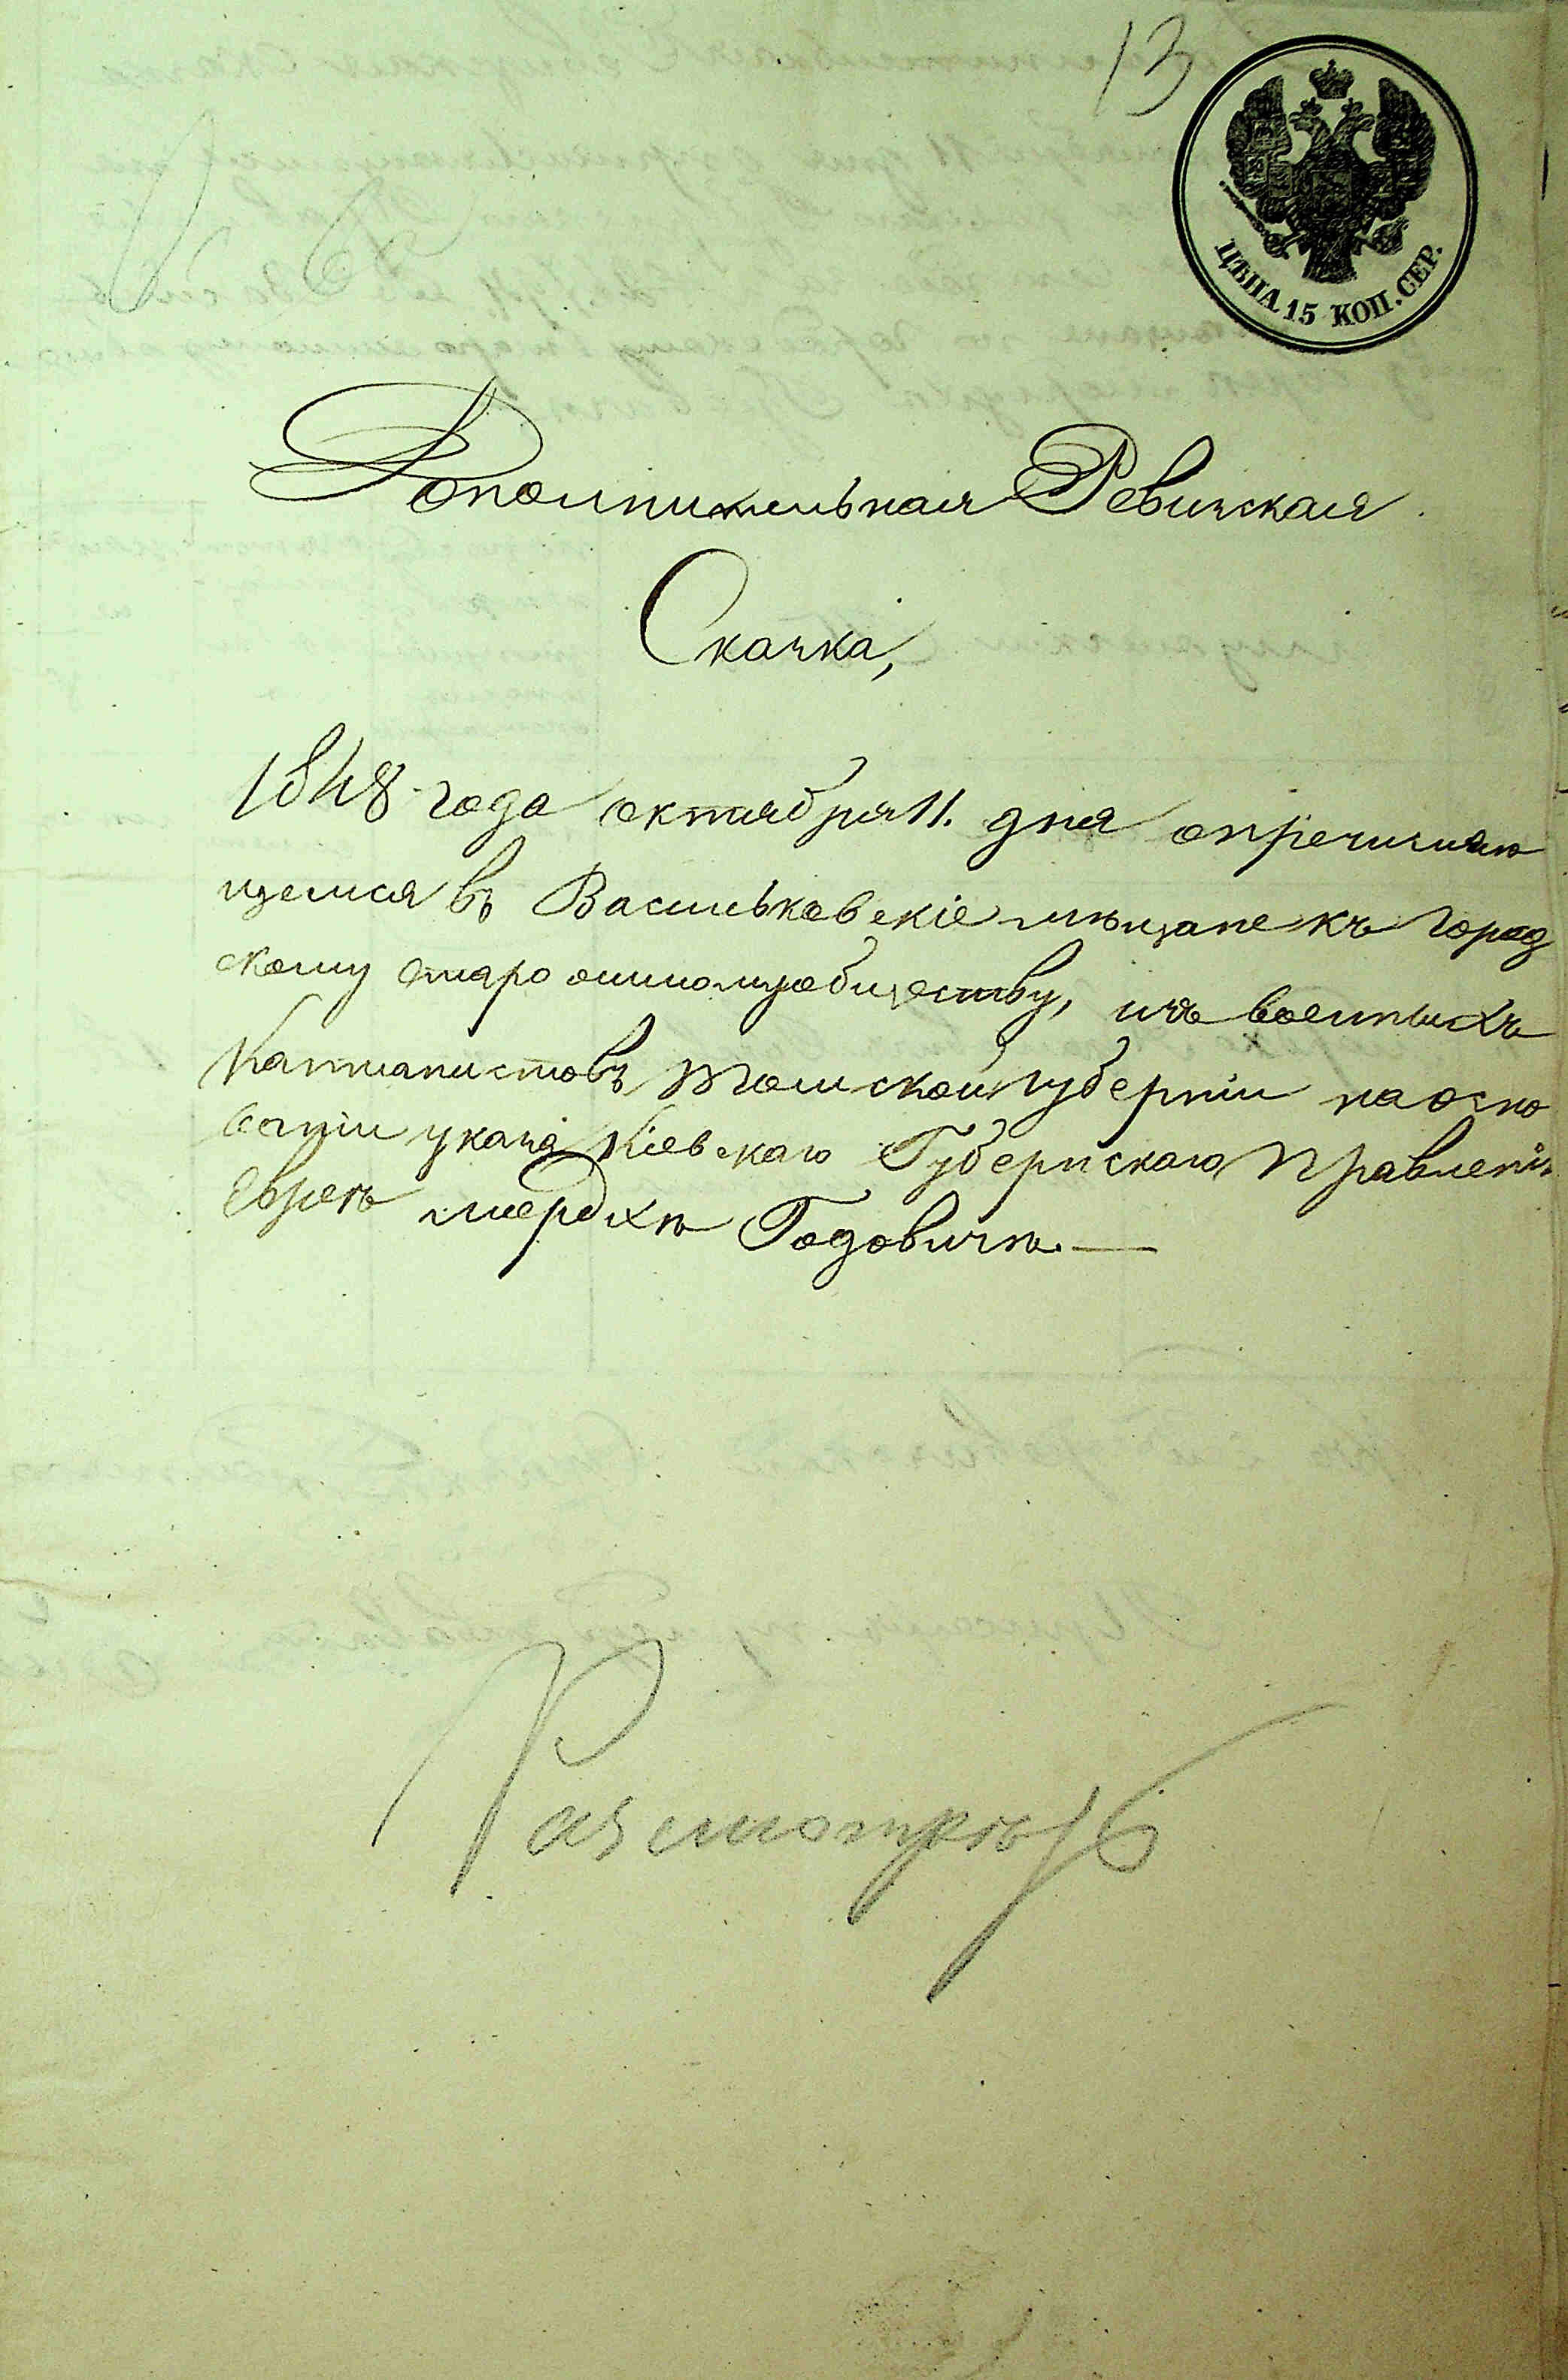 13
ЦѢНА 15 КОП. СЕР.
Дополнительная Ревизская
Сказка,
1848 года октября 11. дня опречисляю
щемся въ Васильковскіе мѣщане къ город
скому обществу, изъ военныхъ
Кантонистовъ Томской губерніи на осно
ваніи указа Кіевскаго Губернскаго Правленія
Евреѣ Мердхѣ Годовичѣ.—